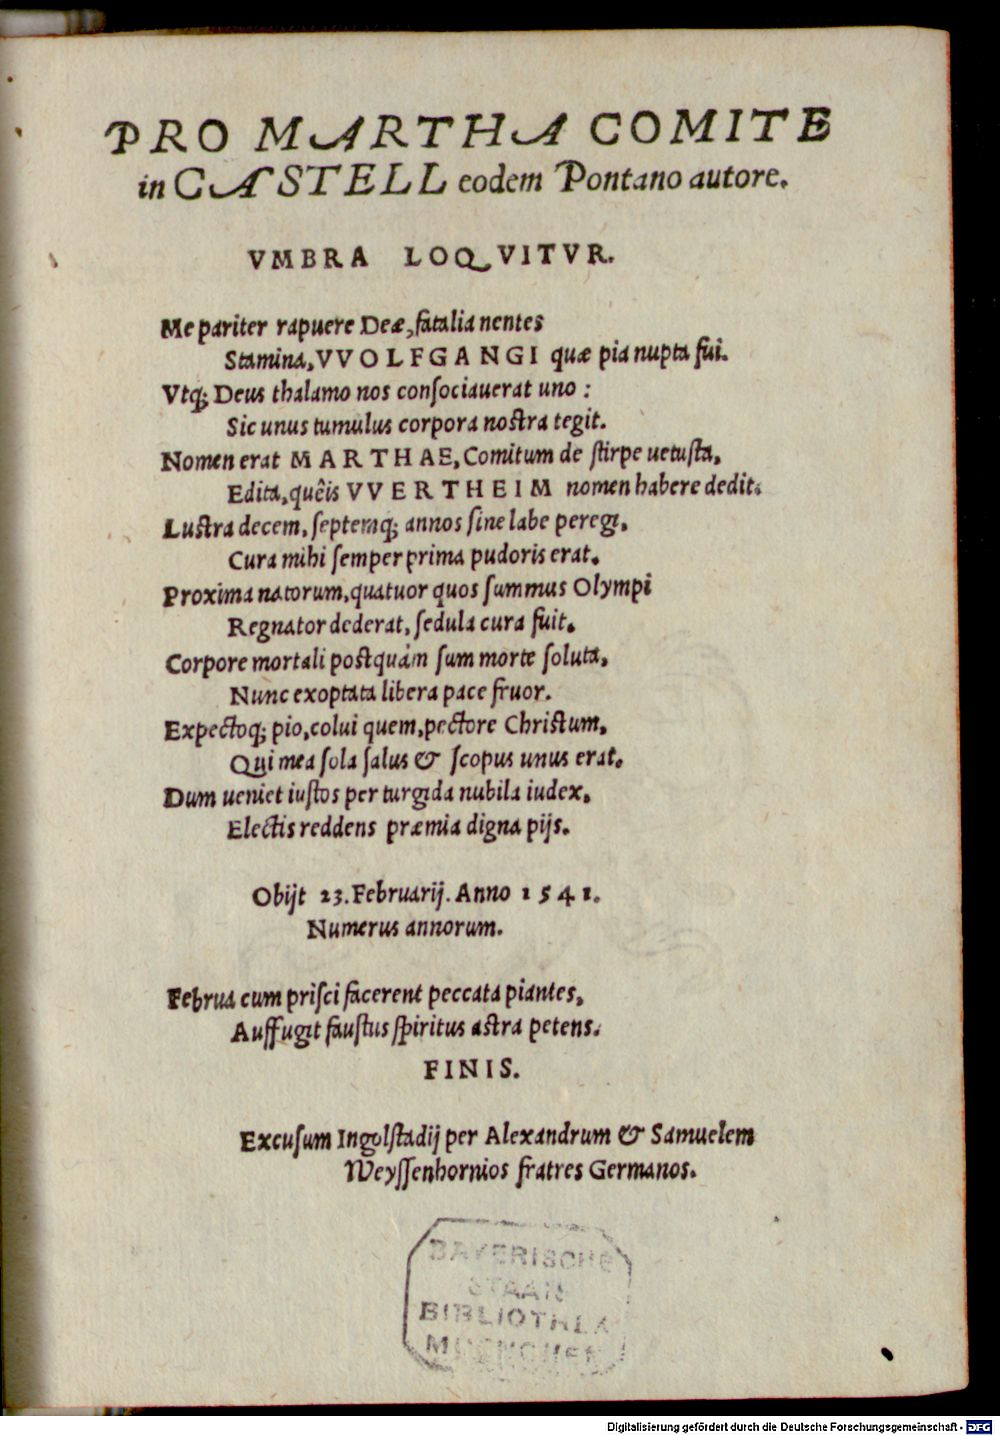 PRO MARTHA COMITE
in CASTELL eodem Pontano autore.
VMBRA LOQVITVR.
Me pariter rapuere Deæ, fatalia nentes
Stamina, VVOLFGANGI quæ pia nupta fui.
Vtq; Deus thalamo nos conſociauerat uno :
Sic unus tumulus corpora noſtra tegit.
Nomen erat MARTHAE, Comitum de ſtirpe uetuſta,
Edita, quêis VVERTHEIM nomen habere dedit.
Luſtra decem, ſeptemq; annos ſine labe peregi,
Cura mihi ſemper prima pudoris erat.
Proxima natorum, quatuor quos ſummus Olympi
Regnator dederat, ſedula cura fuit.
Corpore mortali poſtquám ſum morte ſoluta,
Nunc exoptata libera pace fruor.
Expectoq; pio, colui quem, pectore Chriſtum,
Qui mea ſola ſalus & ſcopus unus erat.
Dum ueniet iuſtos per turgida nubila iudex,
Electis reddens præmia digna pijs.
Obijt 23. Februarij. Anno 1541.
Numerus annorum.
Februa cum priſci facerent peccata piantes,
Auffugit fauſtus ſpiritus aſtra petens.
FINIS.
Excuſum Ingolſtadij per Alexandrum & Samuelem
Weyſſenhornios fratres Germanos.
BAYERISCHE
STAATS
BIBLIOTHEK
MUENCHEN
Digitalisierung gefördert durch die Deutsche Forschungsgemeinschaft - DFG